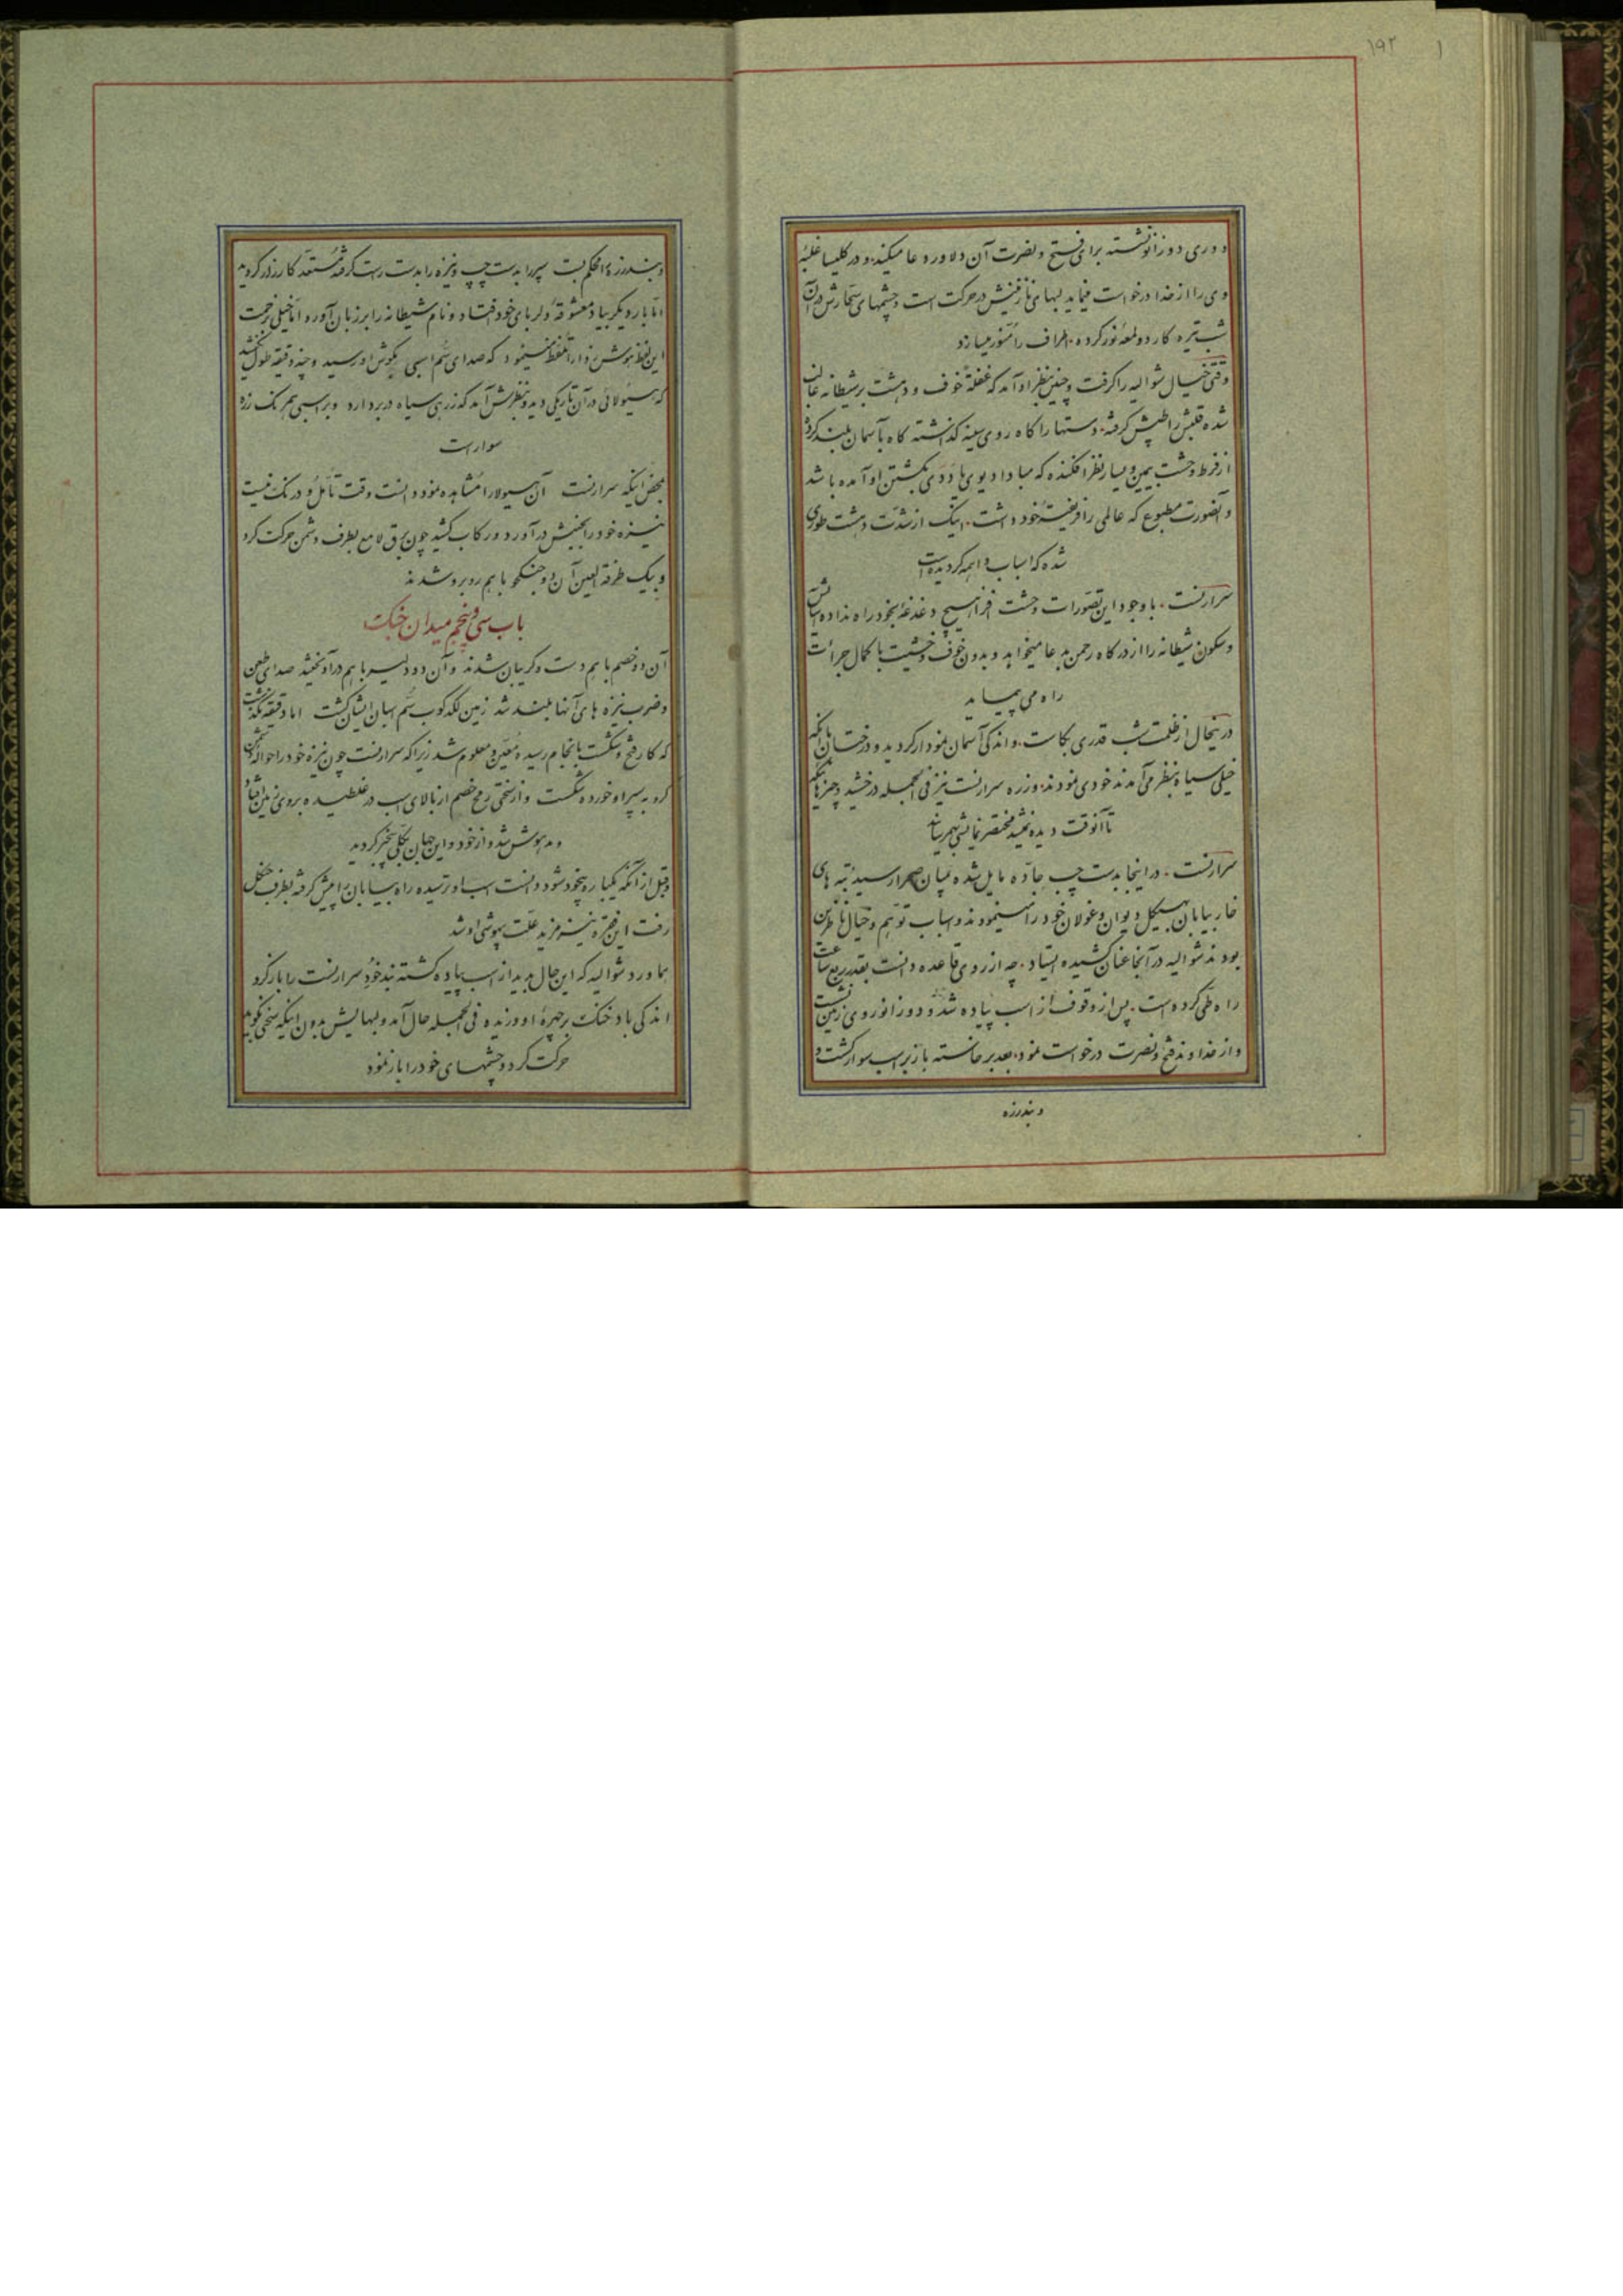 ۱۹۲
۱
دوری دو زانو نشسته برای فتح و نصرت آن دلاور دعا میکند و در کلیسا غلبهٔ
وی را از خدا درخواست مینماید لبهای نازنینش در حرکت است و چشمهای سحارش در آن
شب تیره کار دو لمعه نور کرده اطراف را منور میسازد
وقتی خیال شوالیه را گرفت و چنین بنظر او آمد که غفلةً خوف و دهشت بر شیطانه غالب
شده قلبش را طپش گرفته دستها را گاه روی سینه گذاشته گاه بآسمان بلند کرده
از فرط وحشت بیمین و یسار نظر افکنده که مبادا دیوی یا ددی بکشتن او آمده باشد
و آنصورت مطبوع که عالمی را فریفتهٔ خود داشت اینک از شدت دهشت طوری
شده که اسباب واهمه گردیده است
سرارنست با وجود این تصورات وحشت افزا هیچ دغدغه بخود راه نداده آسایش
و سکون شیطانه را از درگاه رحمن بدعا میخواهد و بدون خوف و خشیت با کمال جرأت
راه می پیماید
در یحال از ظلمت شب قدری بکاست و اندکی آسمان نمودار گردید و درختان با آنکه
خیلی سیاه بنظر می آمدند خودی نمودند و زره سرارنست نیز فی الجمله درخشید و چیزهائیکه
تا آنوقت دیده نمیشد مختصر نمایشی بهمرساند
سرارنست در اینجا بدست چپ جاده مایل شده بمیان صحرا رسید بته های
خار بیابان بهیکل دیوان و غولان خود را مینمودند و اسباب توهم و خیال ناظرین
بودند شوالیه در آنجا عنان کشیده ایستاد چه از روی قاعده دانست بقدر ربع ساعت
راه طی کرده است پس از وقوف از اسب پیاده شد و دو زانو روی زمین نشست
و از خداوند فتح و نصرت درخواست نمود بعد برخاسته باز بر اسب سوار گشت و
و بند زره
و بند زره را محکم بست سپر را بدست چپ و نیزه را بدست راست گرفته مستعد کارزار گردید
اما بار دیگر بیاد معشوقهٔ دلربای خود افتاد و نام شیطانه را بر زبان آورد اما خیلی زحمت
این لفظ هوش ربا را تلفظ مینمود که صدای سم اسبی بگوش او رسید و چند دقیقه طول نکشید
که هیولائی در آن تاریکی دید و بنظرش آمد که زرهی سیاه در بر دارد و بر اسبی همرنگ زره
سوار است
بمحض اینکه سرارنست آن هیولا را مشاهده نمود دانست وقت تأمل و درنگ نیست
نیزه خود را بجنبش در آورد و رکاب کشید چون برق لامع بطرف دشمن حرکت کرد
و بیک طرفة العین آن دو جنگجو با هم روبرو شدند
باب سی و پنجم میدان جنگ
آن دو خصم با هم دست و گریبان شدند و آن دو دلیر با هم در آویختند صدای طعن
و ضرب نیزه های آنها بلند شد زمین لگدکوب سم اسبان ایشان گشت اما دقیقه نگذشت
که کار فتح و شکست بانجام رسید و معین و معلوم شد زیرا که سرارنست چون نیزه خود را حواله دشمن
کرد بسپر او خورده شکست و از سختی رمح خصم از بالای اسب در غلطیده بروی زمین افتاد
و مدهوش شد و از خود و این جهان بکلی بیخبر گردید
و قبل از آنکه یکباره بیخود شود دانست اسب او ترسیده راه بیابان را پیش گرفته بطرف جنگل
رفت این فقره نیز مزید علت بیهوشی او شد
هماورد شوالیه که این حال بدید از اسب پیاده گشته بند خود سرارنست را باز کرد
اندکی باد خنک بر چهرهٔ او وزیده فی الجمله حال آمد و لبهایش بدون اینکه سخنی بگوید
حرکت کرد و چشمهای خود را باز نمود